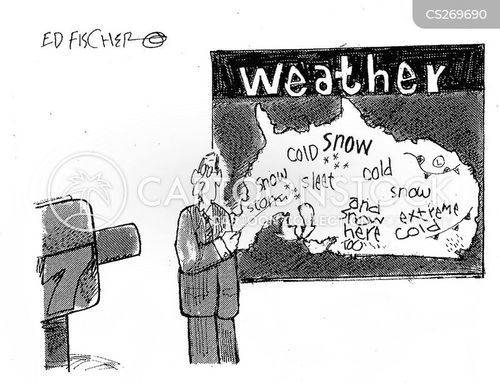 CS269690
ED FISCHER ©
weather
COLD SNOW
snow sleet cold
storm snow
and extreme
snow cold
here
too
L
7
CARTOONSTOCK
COLLECT.COM